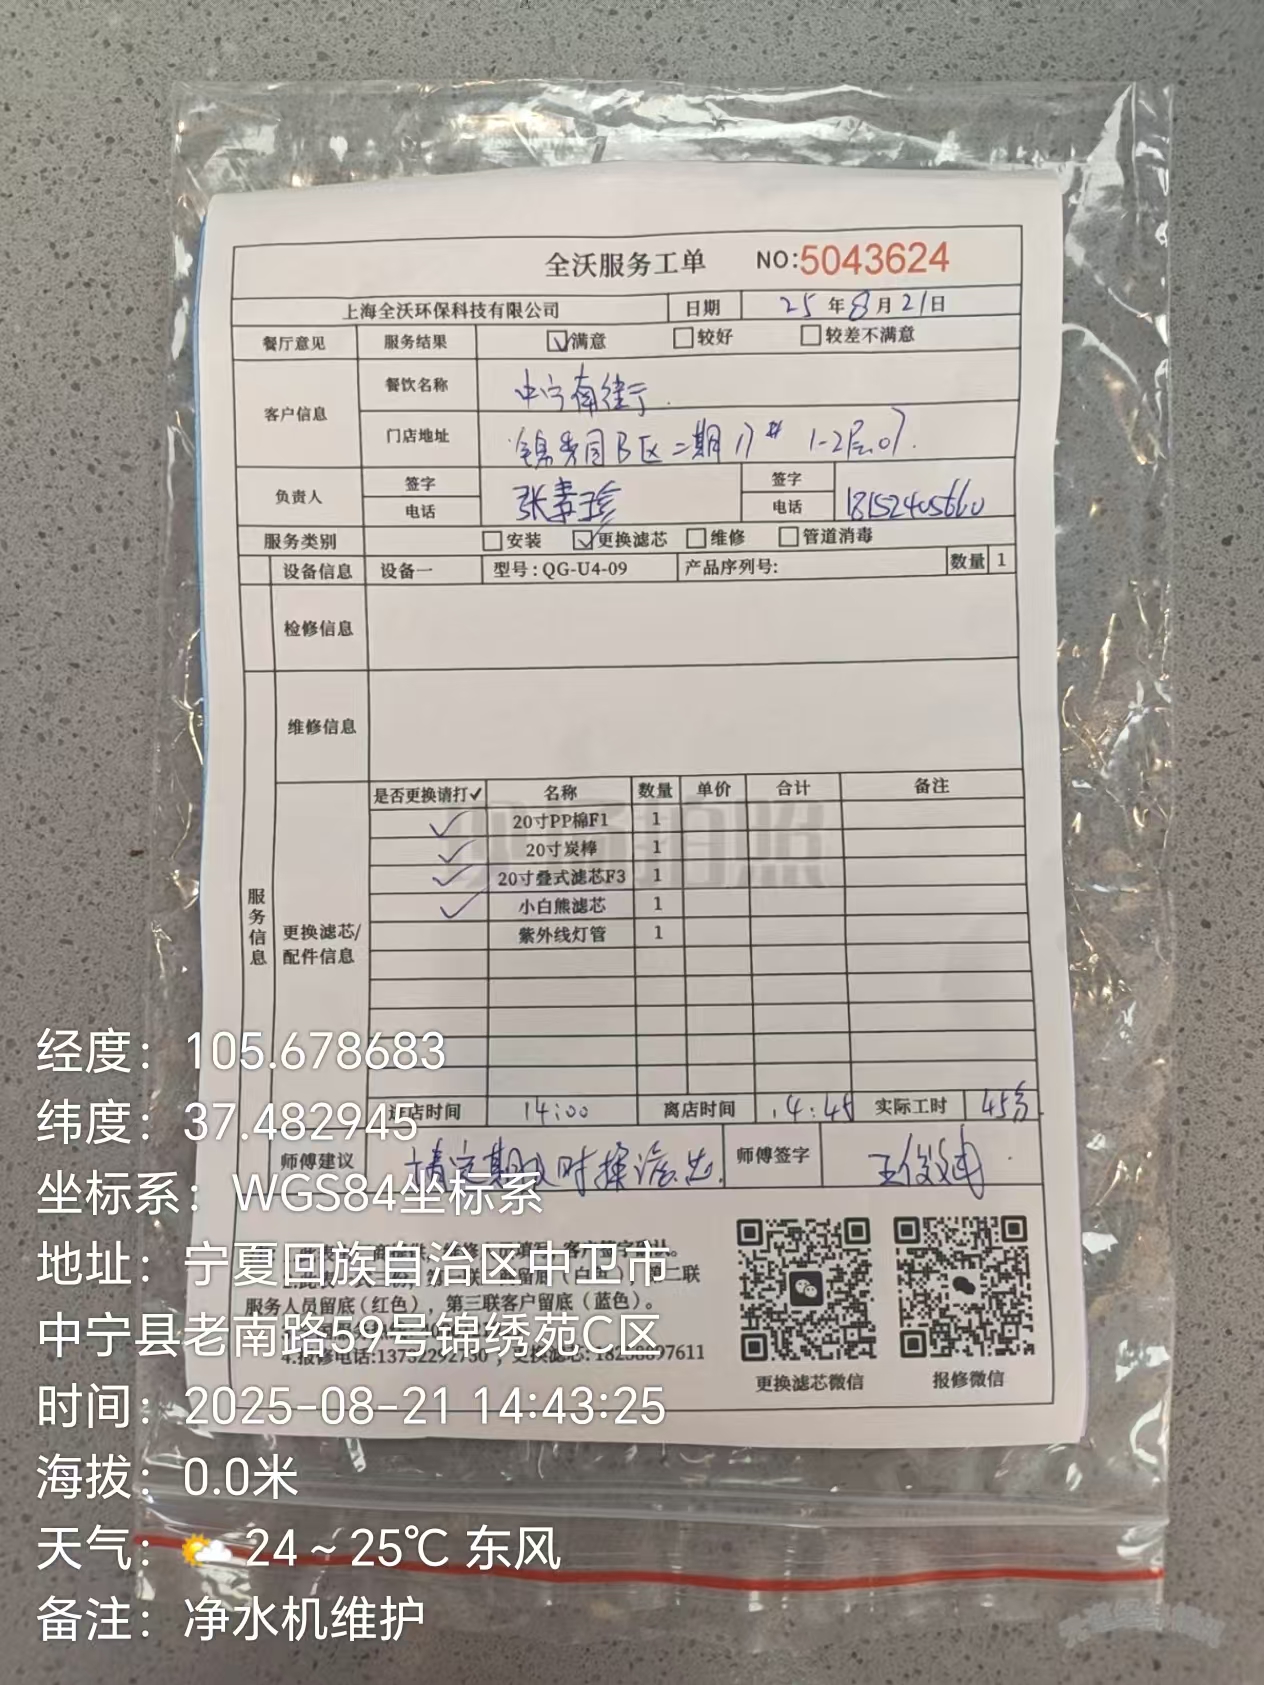 全沃服务工单 NO:5043624
上海全沃环保科技有限公司 日期 25年8月21日
餐厅意见 服务结果 ☑满意 □较好 □较差不满意
客户信息 餐饮名称 中宁南街于
门店地址 锦秀园B区二期17# 1-2层07.
负责人 签字 张素珍 签字
电话 电话 18152405660
服务类别 □安装 ☑更换滤芯 □维修 □管道消毒
设备信息 设备一 型号:QG-U4-09 产品序列号: 数量 1
检修信息
维修信息
服务信息
更换滤芯/
配件信息
是否更换请打✓ 名称 数量 单价 合计 备注
✓ 20寸PP棉F1 1
✓ 20寸炭棒 1
✓ 20寸叠式滤芯F3 1
✓ 小白熊滤芯 1
紫外线灯管 1
现场拍照
进店时间 14:00 离店时间 14:45 实际工时 45分
师傅建议 请定期及时换滤芯. 师傅签字
服务人员留底(红色),第三联客户留底(蓝色)。
更换滤芯微信 报修微信
经度:105.678683
纬度:37.482945
坐标系:WGS84坐标系
地址:宁夏回族自治区中卫市
中宁县老南路59号锦绣苑C区
时间:2025-08-21 14:43:25
海拔:0.0米
天气: 24~25℃ 东风
备注:净水机维护